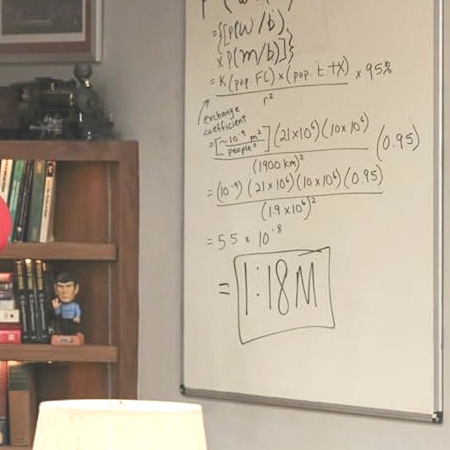 ={[P(W/b)
× P(m/b)]}
= K (pop. FL) × (pop. E. TX) × 95%
r²
exchange
coefficient
= [~10⁻⁹ m² / people²] (21×10⁶)(10×10⁶) (0.95)
(1900 km)²
= (10⁻⁹)(21×10⁶)(10×10⁶)(0.95)
(1.9×10⁶)²
= 5.5 × 10⁻⁸
= 1:18M